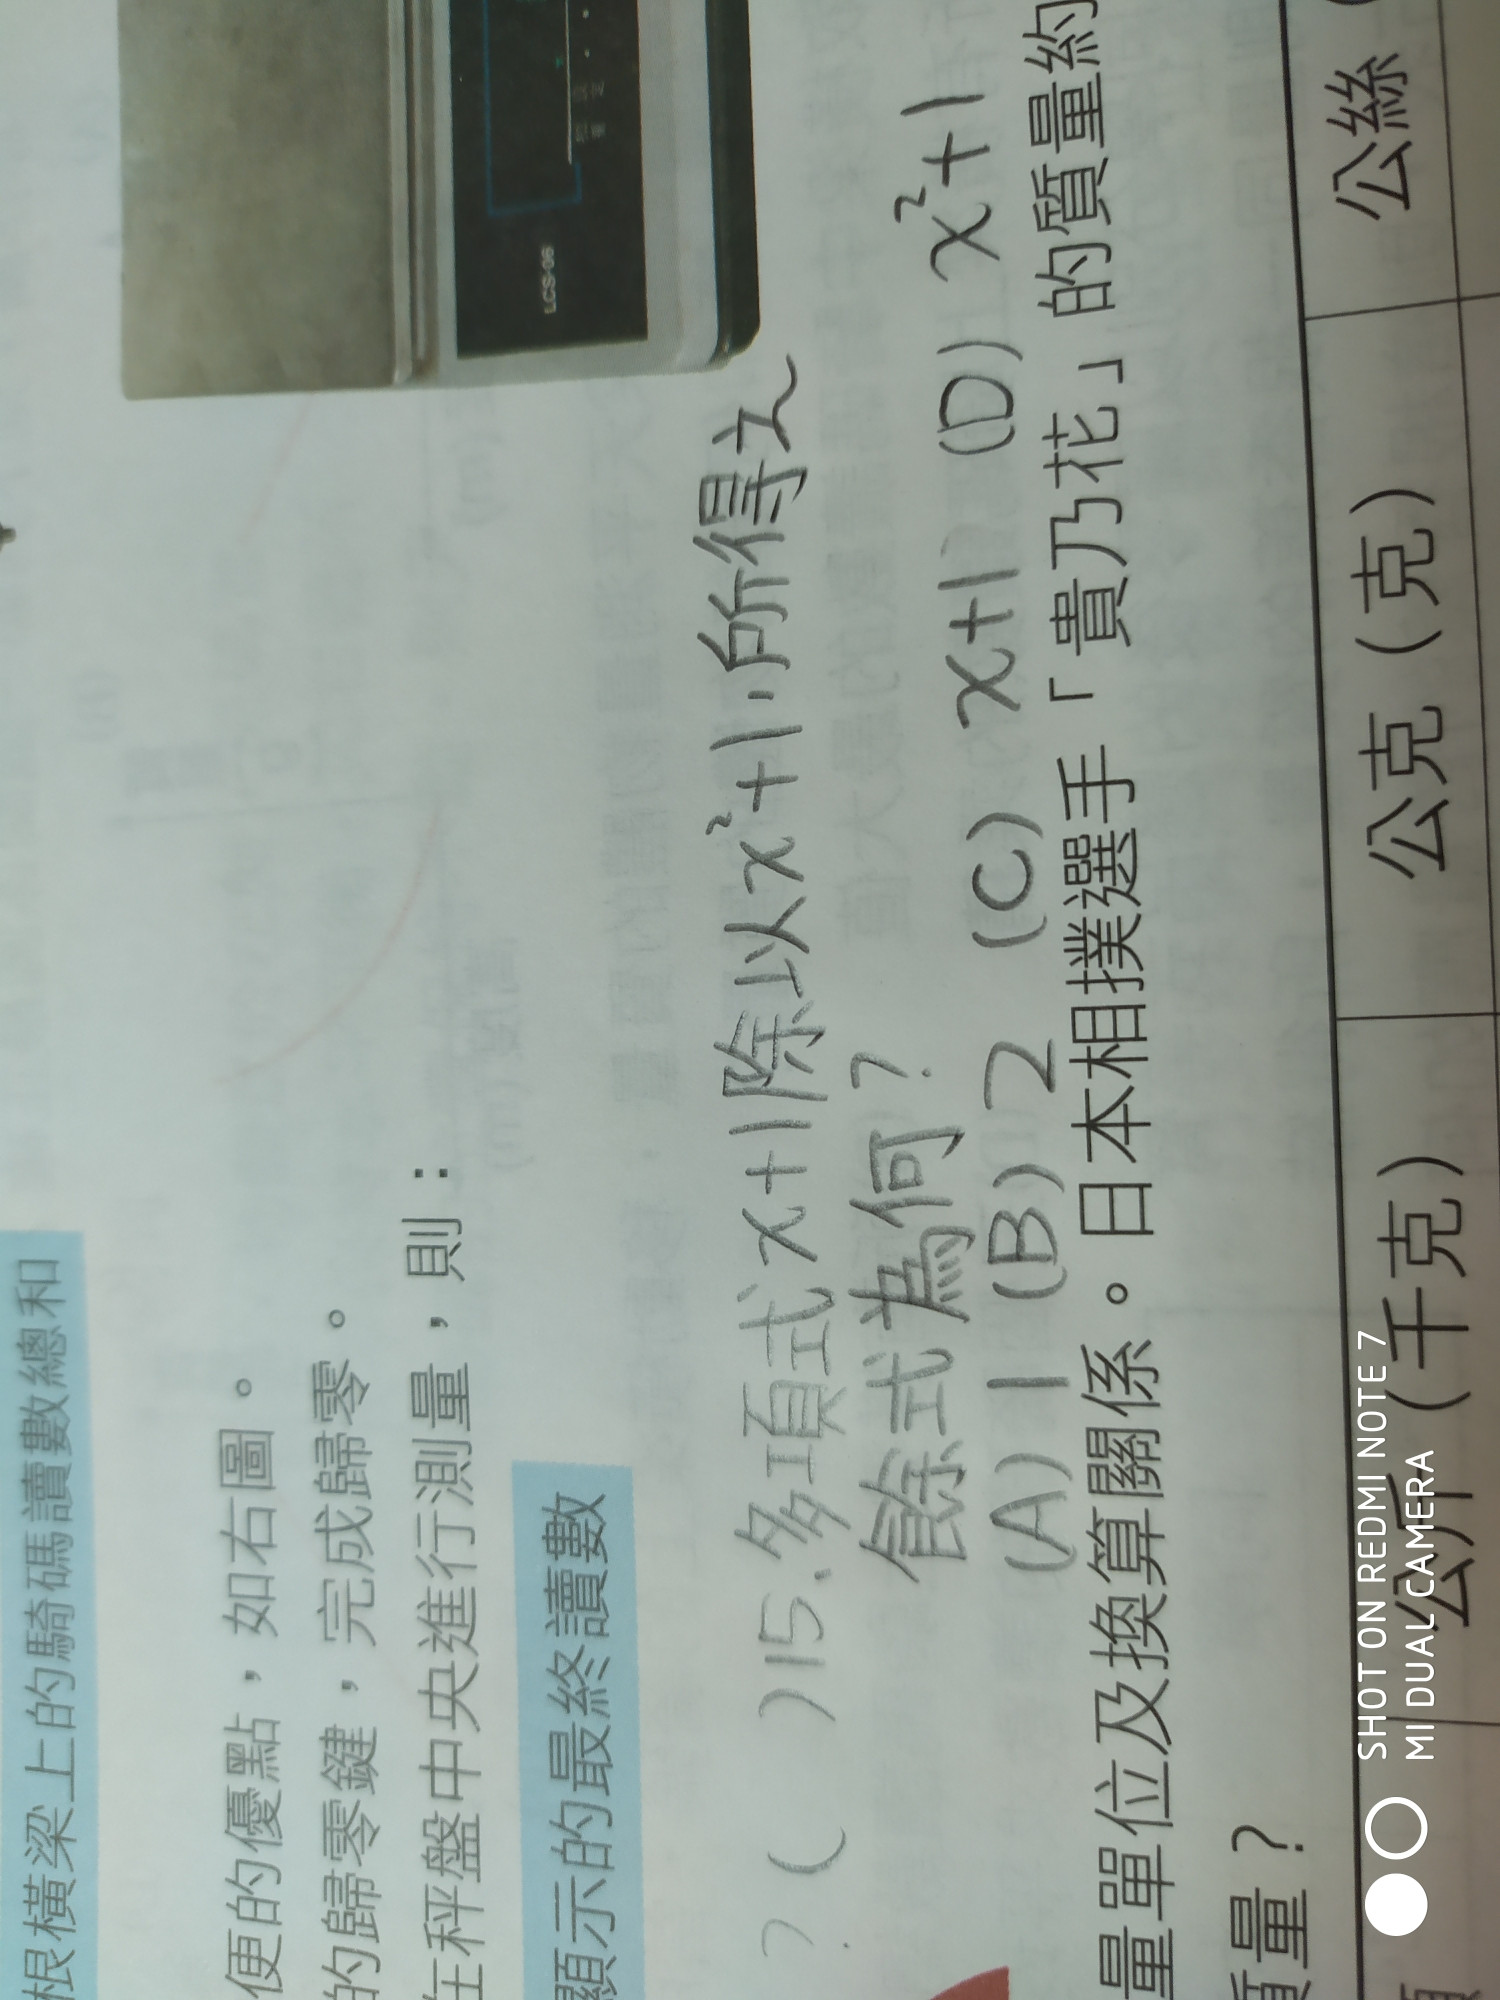 根橫梁上的騎碼讀數總和
便的優點，如右圖。
的歸零鍵，完成歸零。
在秤盤中央進行測量，則：
顯示的最終讀數
LCS-06
?( )15、多項式x+1除以x²+1,所得之
餘式為何?
(A) 1 (B) 2 (C) x+1 (D) x²+1
量單位及換算關係。日本相撲選手「貴乃花」的質量約
質量？
公斤（千克） 公克（克） 公絲（
SHOT ON REDMI NOTE 7
MI DUAL CAMERA